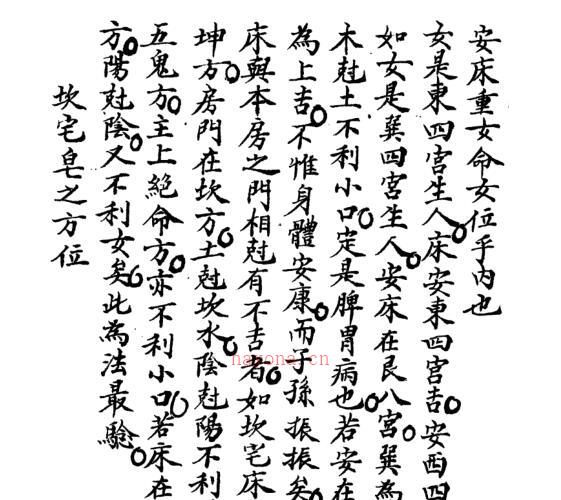 安床重女命女位乎內也
女是東四宮生人床安東四宮吉安西四
如女是巽四宮生人安床在艮八宮巽為
木尅土不利小口定是脾胃病也若安在
為上吉不惟身體安康而子孫振振矣
床與本房之門相尅有不古者如坎宅床
坤方房門在坎方土尅坎水陰尅陽不利
五鬼方主上絕命方亦不利小口若床在
方陽尅陰又不利女矣此為法最騐
坎宅皂之方位